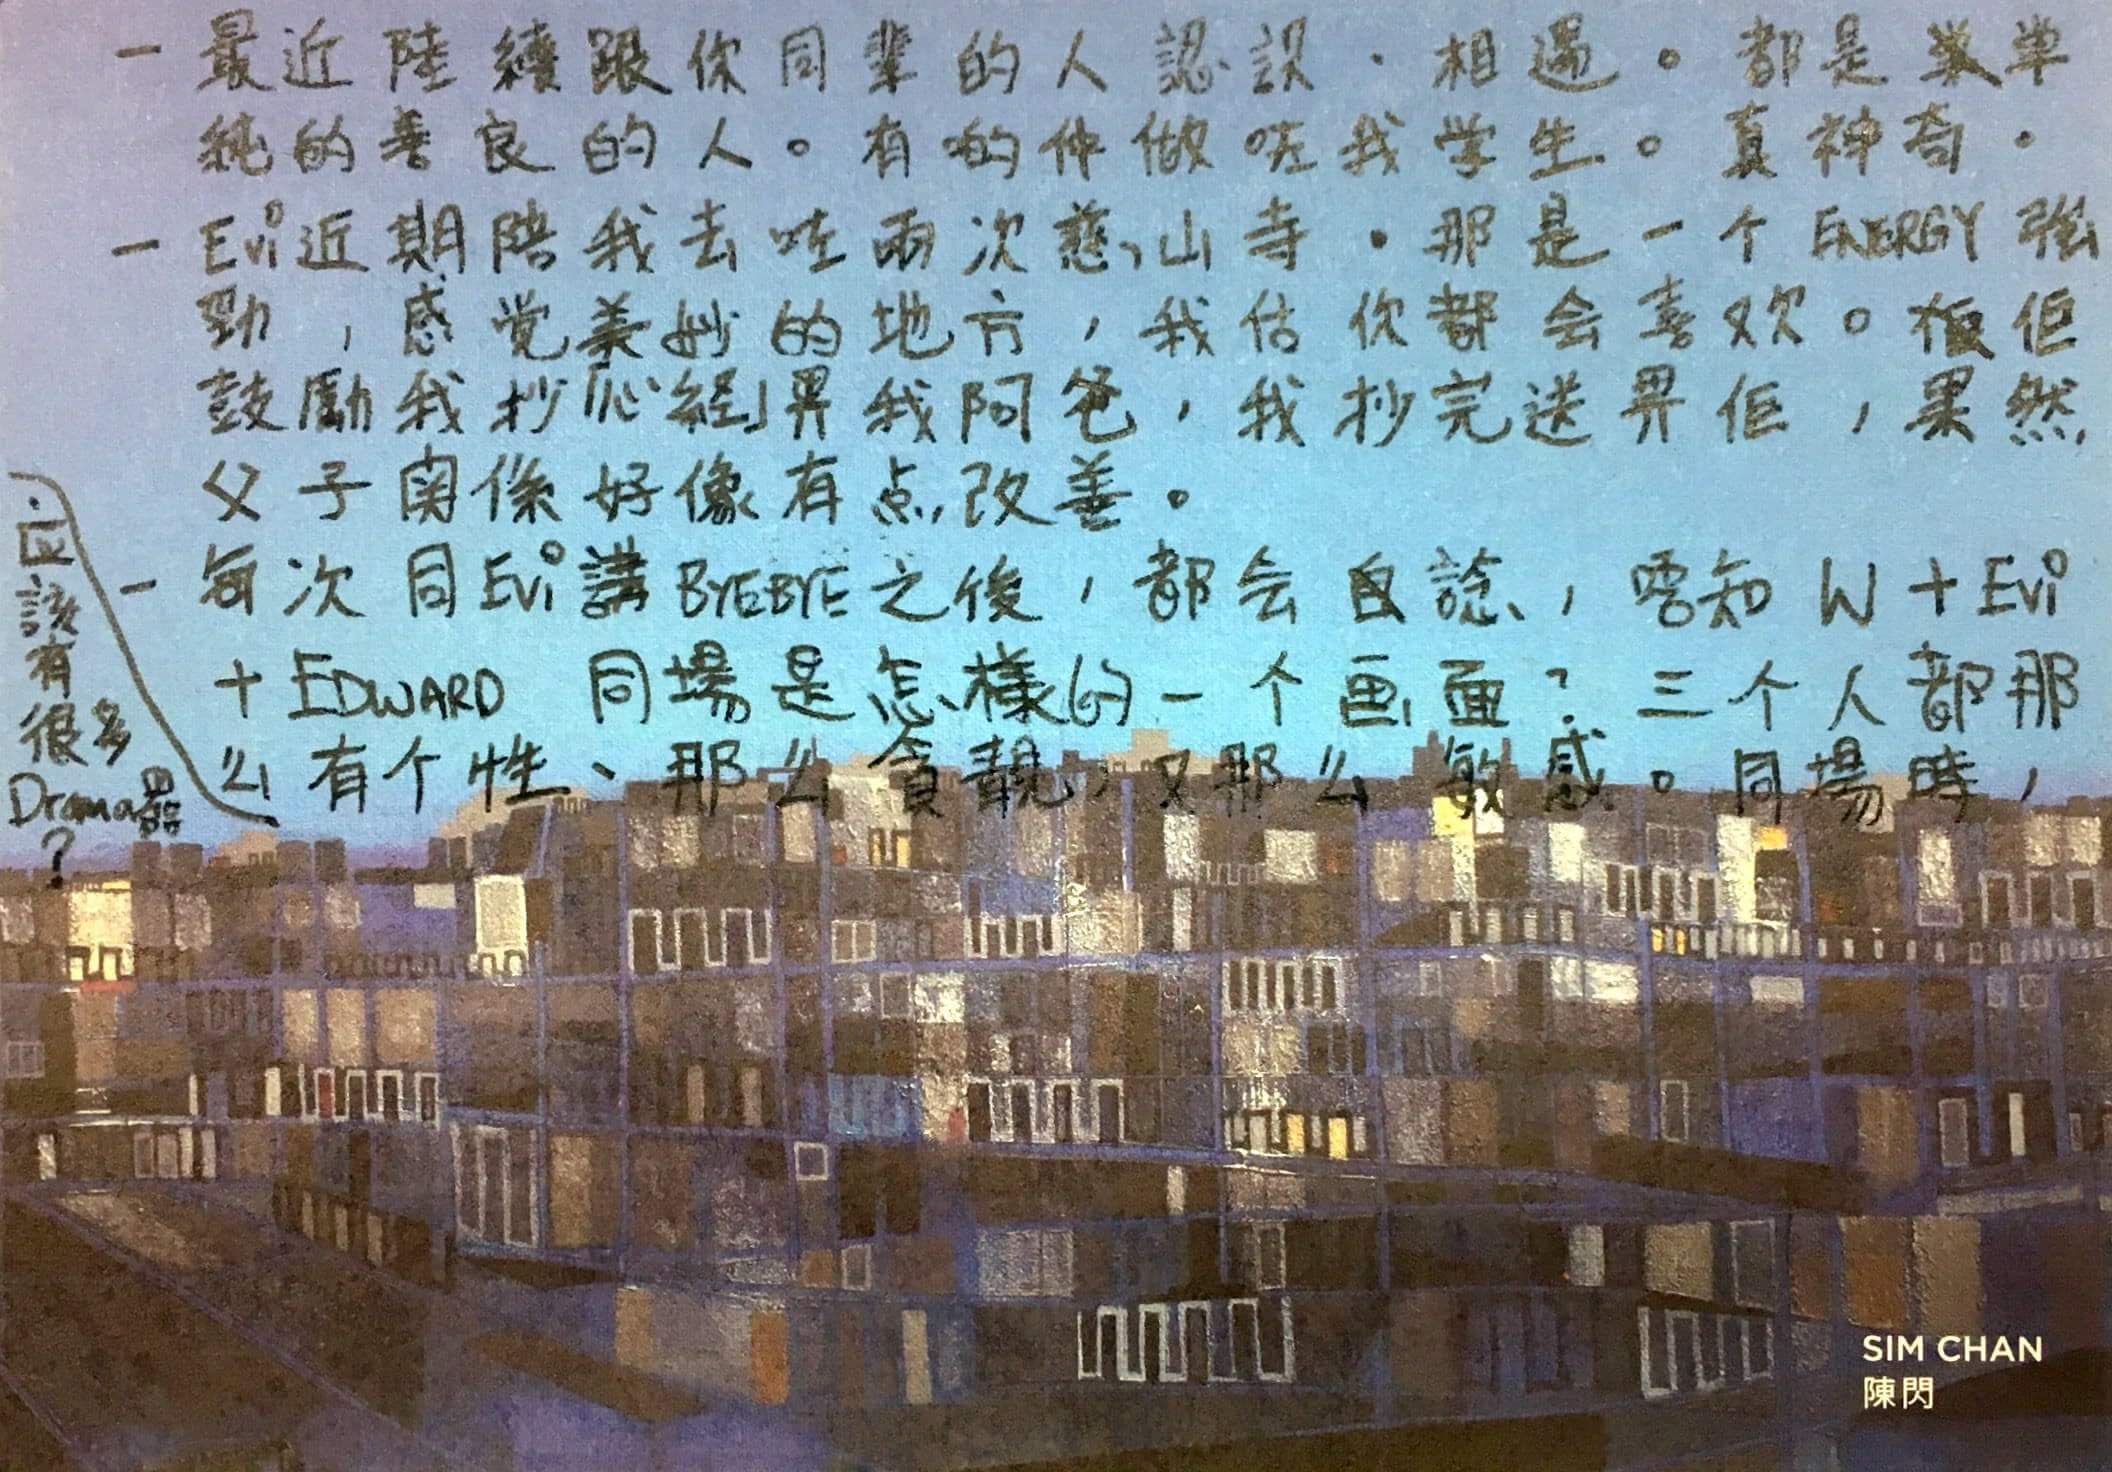 - 最近陸續跟你同輩的人認識．相遇。都是単
純的善良的人。有啲仲做咗我学生。真神奇．
- Evi近期陪我去咗兩次慈山寺．那是一个ENERGY強
勁，感覚美妙的地方，我估你都会喜欢。佢
鼓勵我抄「心経」畀我阿爸，我抄完送畀佢，果然
父子関係好像有点改善。
- 每次同Evi講BYEBYE之後，都会自諗，唔知W+Evi
+EDWARD同場是怎樣的一个画面？三个人都那
么有个性、那么貪靚，又那么敏感。同場時，
应
該
有
很多
Drama器
?
SIM CHAN
陳閃